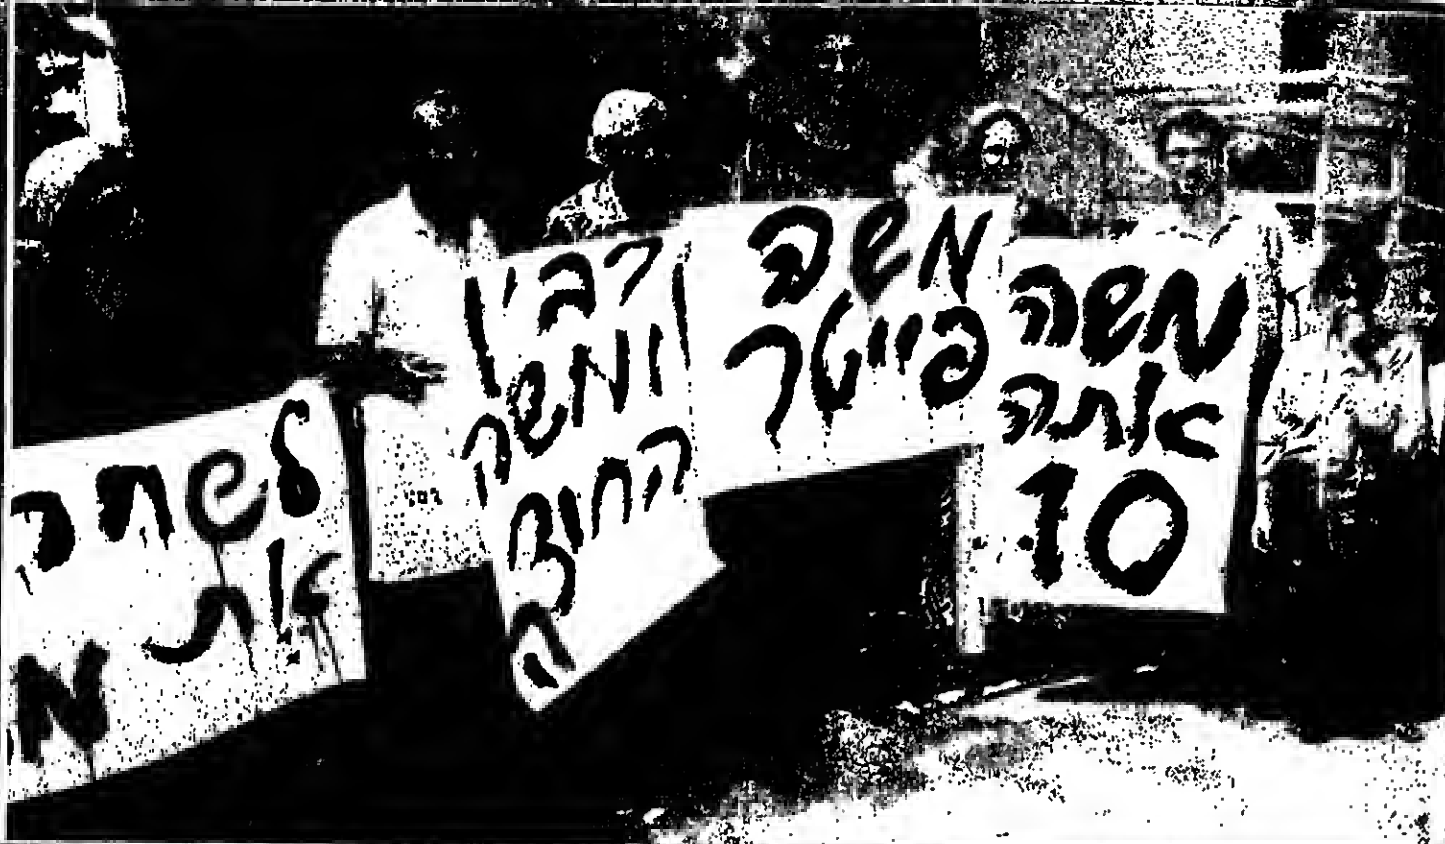 משה
אתה
10
משה
פייטר
רבין
ומשה
החוצ
ה
את